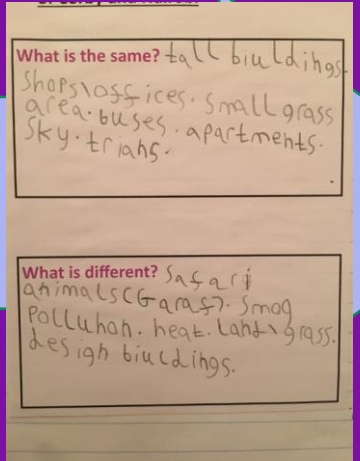 What is the same? tall biuldings.
Shops\offices. small grass
area. buses. apartments.
Sky. trians.
What is different? Safari
animals
smog
Polluhon. heat. land\grass.
design biuldings.